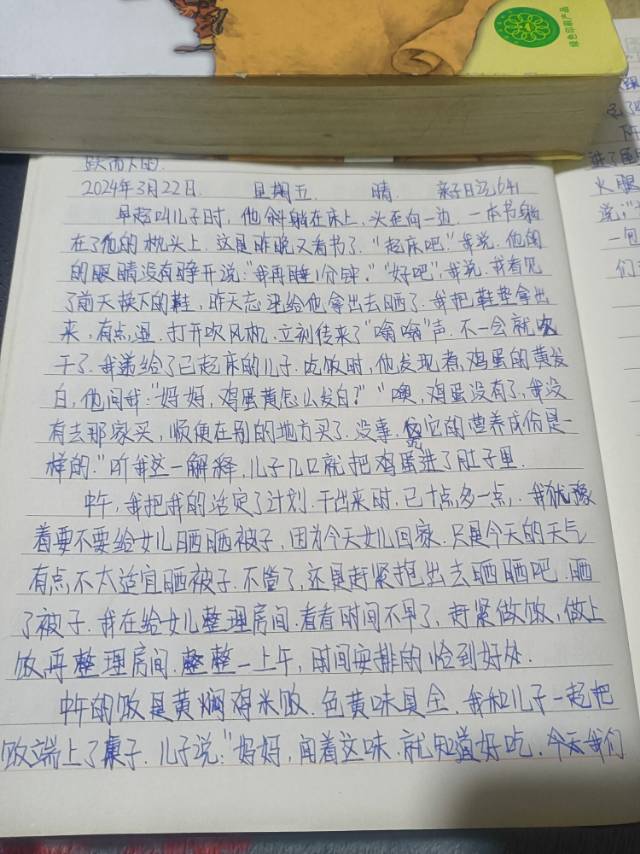 绿色印刷产品
跌而下的.
2024年3月22日. 星期五 晴 亲子日记1641
早起叫儿子时，他斜躺在床上，头歪向一边，一本书躺
在了他的枕头上.这是昨晚又看书了."起床吧"我说.他的
的眼睛没有睁开说:"我再睡1分钟.""好吧",我说.我看见
了前天换下的鞋，昨天忘记给他拿出去晒了.我把鞋垫拿出
来，有点湿.打开吹风机，立刻传来了"嗡嗡"声.不一会就吹
干了.我递给了已起床的儿子.吃饭时，他发现煮鸡蛋的黄发
白，他问我:"妈妈，鸡蛋黄怎么发白?""噢，鸡蛋没有了，我没
有去那家买，顺便在别的地方买了.没事，它的营养成份是一
样的."听我这一解释，儿子几口就把鸡蛋送进了肚子里.
中午，我把我的活定了计划.干出来时，已十点多一点，我犹豫
着要不要给女儿晒晒被子，因为今天女儿回家.只是今天的天气
有点不太适宜晒被子.不管了，还是赶紧抱出去晒晒吧.晒
了被子.我在给女儿整理房间.看看时间不早了，赶紧做饭，做上
饭,再整理房间.整整一上午，时间安排的恰到好处.
中午的饭是黄焖鸡米饭.色黄味具全.我和儿子一起把
饭端上了桌子.儿子说:"妈妈，闻着这味.就知道好吃.今天我们